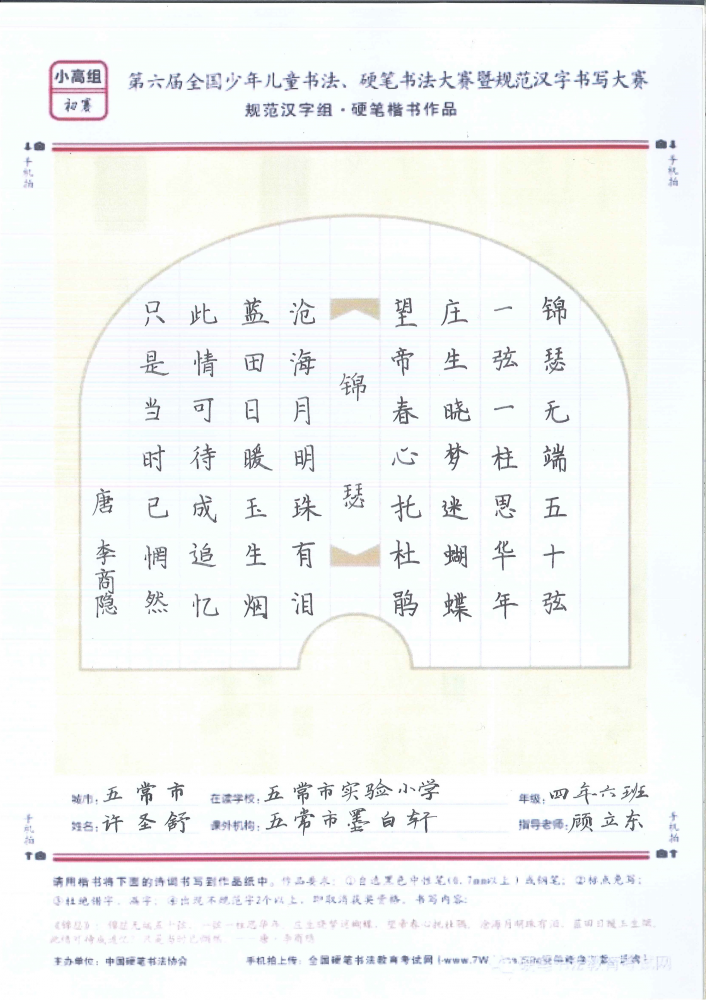 小高组
初赛
第六届全国少年儿童书法、硬笔书法大赛暨规范汉字书写大赛
规范汉字组·硬笔楷书作品
手机拍
手机拍
锦瑟无端五十弦
一弦一柱思华年
庄生晓梦迷蝴蝶
望帝春心托杜鹃
锦瑟
沧海月明珠有泪
蓝田日暖玉生烟
此情可待成追忆
只是当时已惘然
唐 李商隐
城市：五常市 在读学校：五常市实验小学 年级：四年六班
姓名：许圣舒 课外机构：五常市墨白轩 指导老师：顾立东
手机拍
手机拍
请用楷书将下面的诗词书写到作品纸中。作品要求：①自选黑色中性笔（0.7mm以上）或钢笔；②标点免写；
③杜绝错字、漏字；④出现不规范字2个以上，即取消获奖资格。书写内容：
《锦瑟》：锦瑟无端五十弦，一弦一柱思华年。庄生晓梦迷蝴蝶，望帝春心托杜鹃。沧海月明珠有泪，蓝田日暖玉生烟。
此情可待成追忆？只是当时已惘然。——唐·李商隐
主办单位：中国硬笔书法协会 手机拍上传：全国硬笔书法教育考试网（www.7W